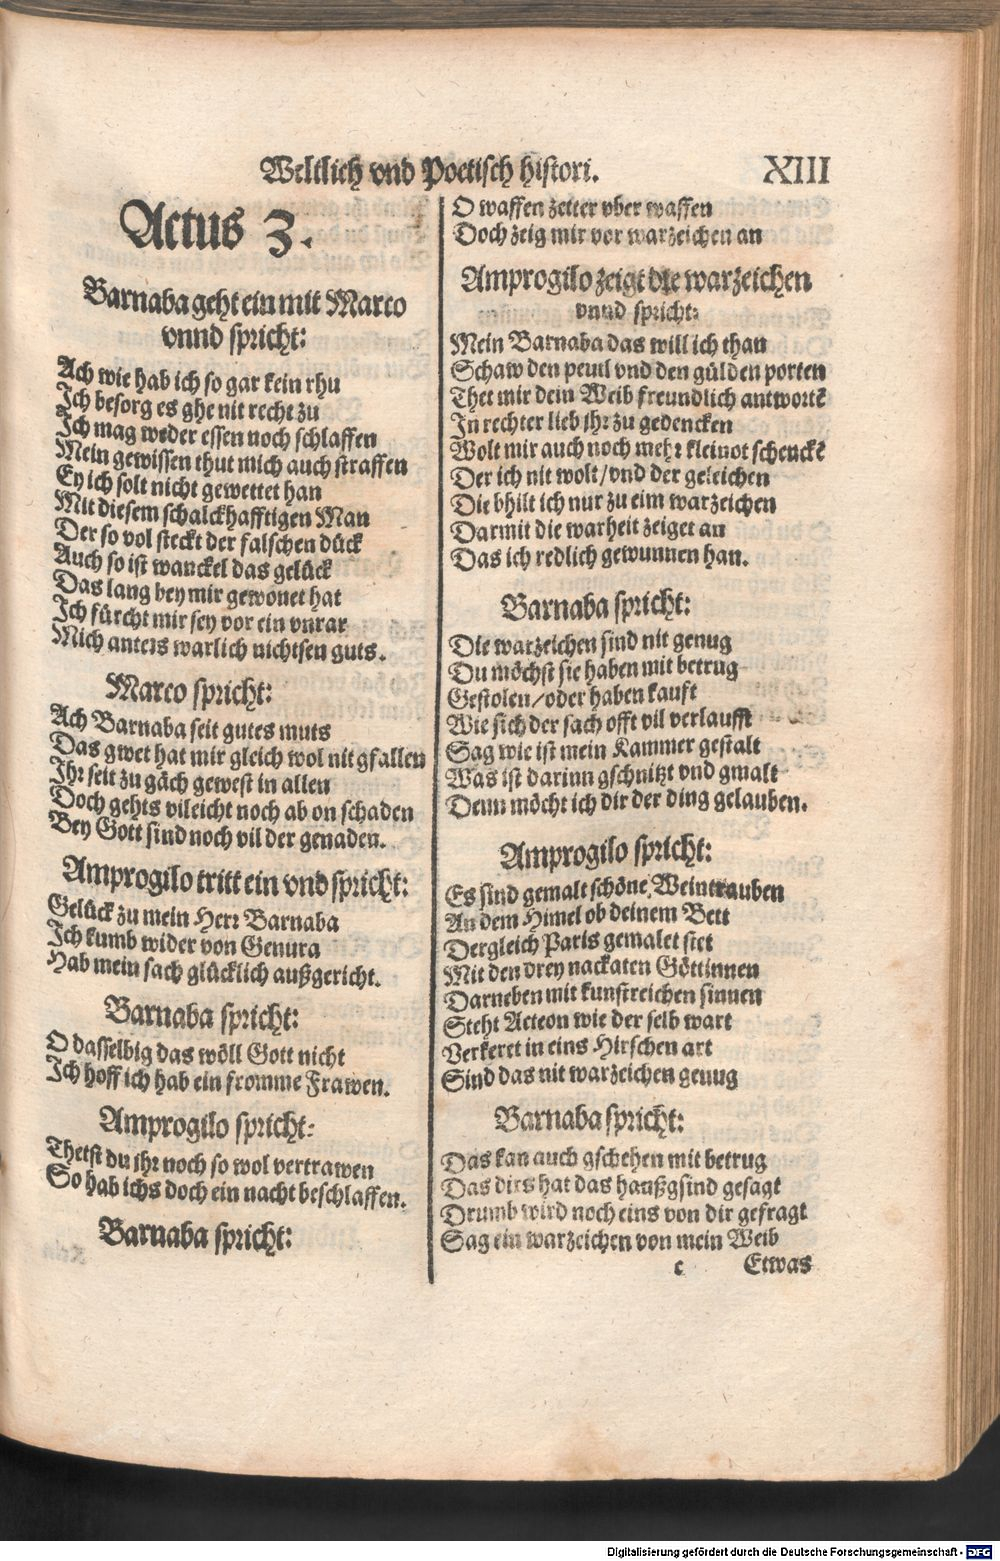 Weltlich vnd Poetisch histori.
XIII
Actus 3.
Barnaba geht ein mit Marco
vnnd spricht:
Ach wie hab ich so gar kein rhu
Ich besorg es ghe nit recht zu
Ich mag weder essen noch schlaffen
Mein gewissen thut mich auch straffen
Ey ich solt nicht gewettet han
Mit diesem schalckhafftigen Man
Der so vol steckt der falschen dück
Auch so ist wanckel das gelück
Das lang bey mir gewonet hat
Ich fürcht mir sey vor ein vnrar
Mich anters warlich nichtsen guts.
Marco spricht:
Ach Barnaba seit gutes muts
Das gwet hat mir gleich wol nit gfallen
Ihr seit zu gäch gewest in allen
Doch gehts vileicht noch ab on schaden
Bey Gott sind noch vil der genaden.
Amprogilo tritt ein vnd spricht:
Gelück zu mein Herr Barnaba
Ich kumb wider von Genura
Hab mein sach glücklich außgericht.
Barnaba spricht:
O dasselbig das wöll Gott nicht
Ich hoff ich hab ein fromme Frawen.
Amprogilo spricht:
Thetst du ihr noch so wol vertrawen
So hab ichs doch ein nacht beschlaffen.
Barnaba spricht:
O waffen zetter vber waffen
Doch zeig mir vor warzeichen an
Amprogilo zeigt die warzeichen
vnnd spricht:
Mein Barnaba das will ich than
Schaw den peutl vnd den gülden porten
Thet mir dein Weib freundlich antwortẽ
In rechter lieb ihr zu gedencken
Wolt mir auch noch mehr kleinot schenckẽ
Der ich nit wolt/vnd der geleichen
Die bhilt ich nur zu eim warzeichen
Darmit die warheit zeiget an
Das ich redlich gewunnen han.
Barnaba spricht:
Die warzeichen sind nit genug
Du möchst sie haben mit betrug
Gestolen/oder haben kauft
Wie sich der sach offt vil verlaufft
Sag wie ist mein Kammer gestalt
Was ist darinn gschnitzt vnd gmalt
Denn möcht ich dir der ding gelauben.
Amprogilo spricht:
Es sind gemalt schöne Weintrauben
An dem Himel ob deinem Bett
Dergleich Paris gemalet stet
Mit den drey nackaten Göttinnen
Darneben mit kunstreichen sinnen
Steht Acteon wie der selb wart
Verkeret in eins Hirschen art
Sind das nit warzeichen genug
Barnaba spricht:
Das kan auch gschehen mit betrug
Das dirs hat das haußgsind gesagt
Drumb wird noch eins von dir gefragt
Sag ein warzeichen von mein Weib
c
Etwas
Digitalisierung gefördert durch die Deutsche Forschungsgemeinschaft - DFG